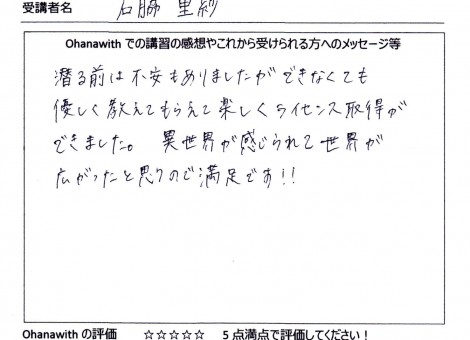 受講者名 石脇 里紗
Ohanawith での講習の感想やこれから受けられる方へのメッセージ等
潜る前は不安もありましたができなくても
優しく教えてもらえて楽しくライセンス取得が
できました。 異世界が感じられて世界が
広がったと思うので満足です!!
Ohanawith の評価 ☆☆☆☆☆ 5 点満点で評価してください!